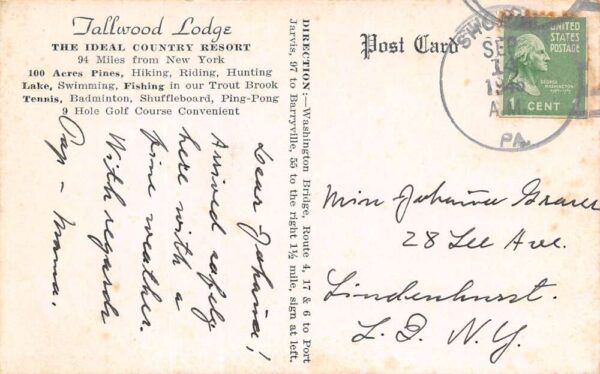 Tallwood Lodge
THE IDEAL COUNTRY RESORT
94 Miles from New York
100 Acres Pines, Hiking, Riding, Hunting
Lake, Swimming, Fishing in our Trout Brook
Tennis, Badminton, Shuffleboard, Ping-Pong
9 Hole Golf Course Convenient
Dear Johanna!
Arrived safely
here with a
fine weather.
With regards
Pap - Mama.
DIRECTION:—Washington Bridge, Route 4, 17 & 6 to Port
Jarvis, 97 to Barryville, 55 to the right 1½ mile, sign at left.
Post Card
SEP
14
A.M.
PA.
UNITED
STATES
POSTAGE
GEORGE
WASHINGTON
1 CENT 1
Miss Johanna Graser
28 Lee Ave.
Lindenhurst.
L. I. N.Y.